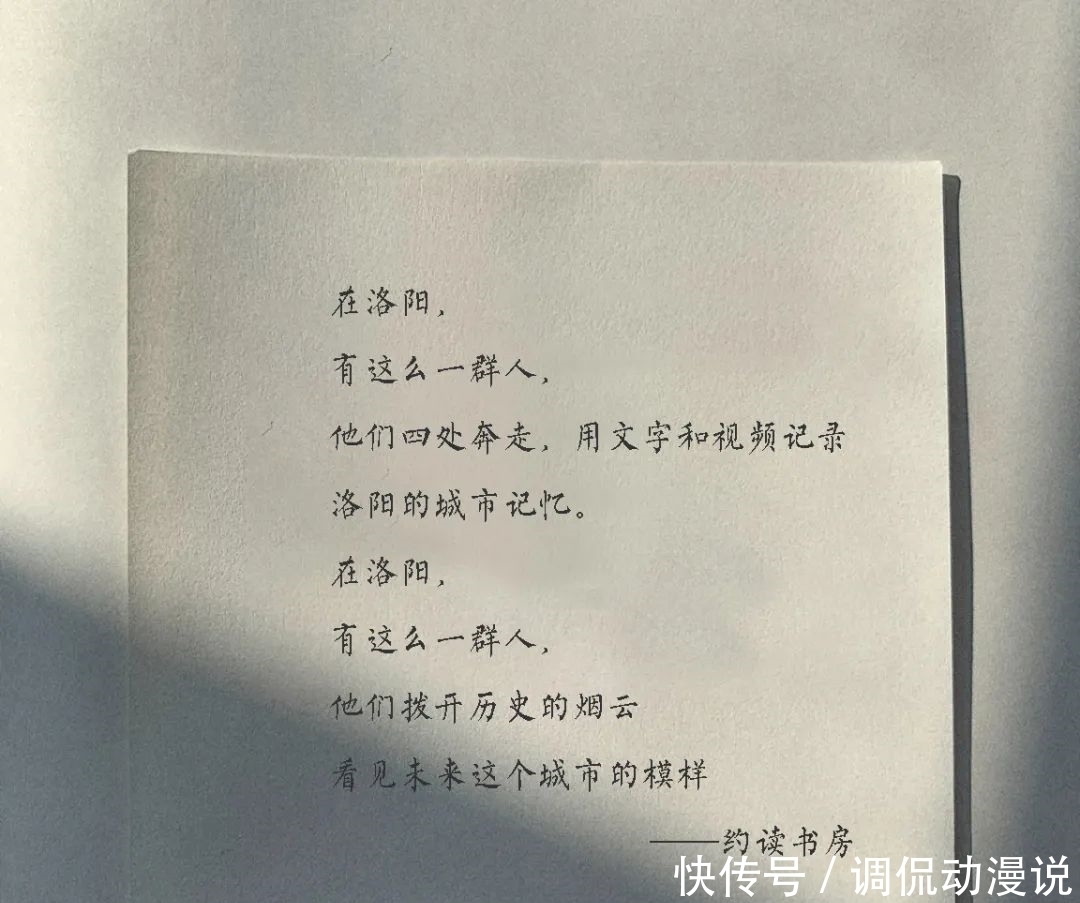 在洛阳，
有这么一群人，
他们四处奔走，用文字和视频记录
洛阳的城市记忆。
在洛阳，
有这么一群人，
他们拨开历史的烟云
看见未来这个城市的模样
——约读书房
快传号 / 调侃动漫说